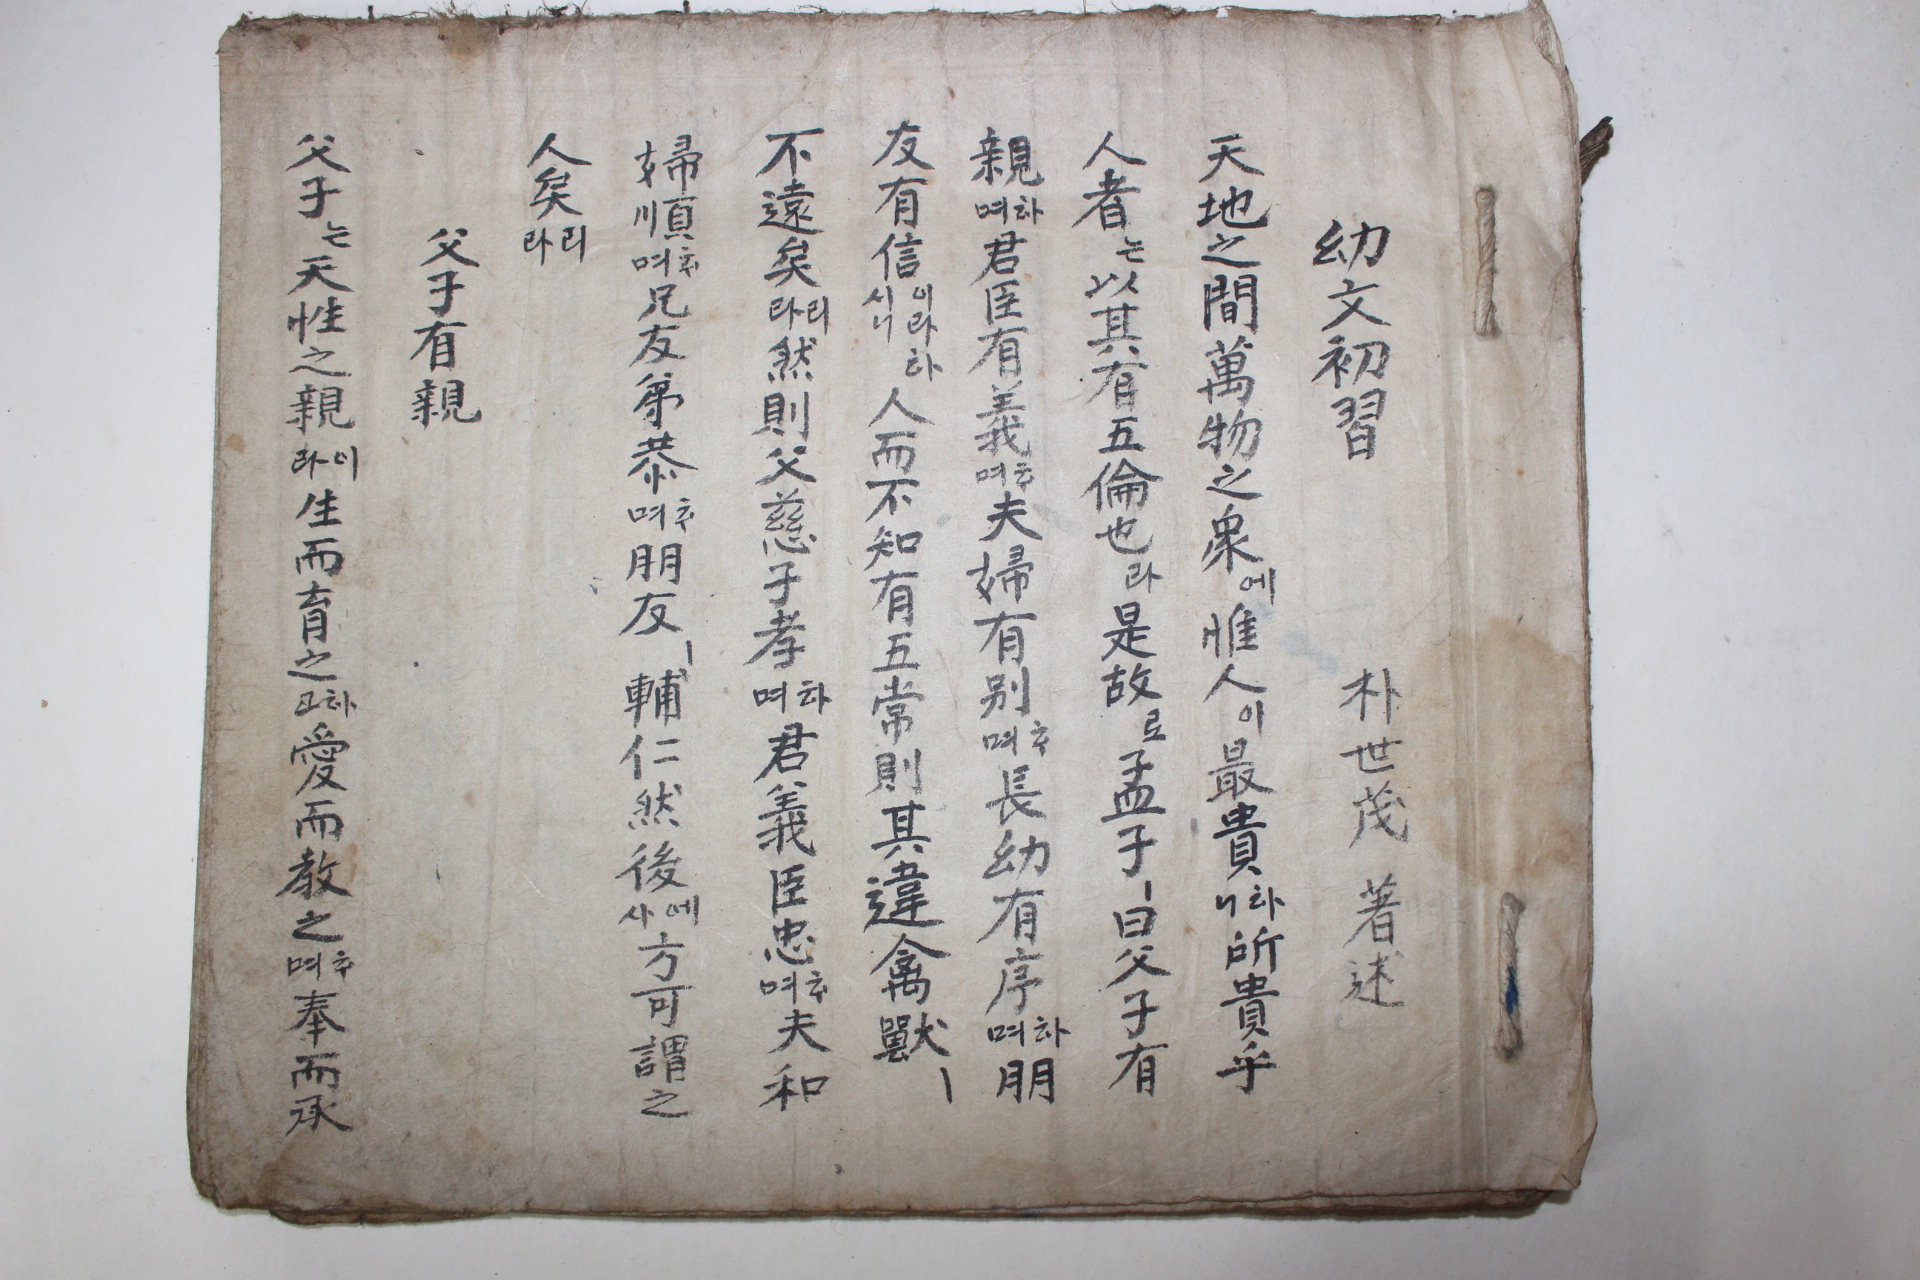 幼文初習 朴世茂 著述
天地之間萬物之衆에惟人이最貴하니所貴乎
人者는以其有五倫也라是故로孟子ㅣ曰父子有
親하며君臣有義ᄒᆞ며夫婦有別ᄒᆞ며長幼有序하며朋
友有信이라하시니人而不知有五常則其違禽獸ㅣ
不遠矣리라然則父慈子孝하며君義臣忠ᄒᆞ며夫和
婦順ᄒᆞ며兄友弟恭ᄒᆞ며朋友ㅣ輔仁然後에사方可謂之
人矣리라
父子有親
父子는天性之親이라生而育之하고愛而教之ᄒᆞ며奉而承